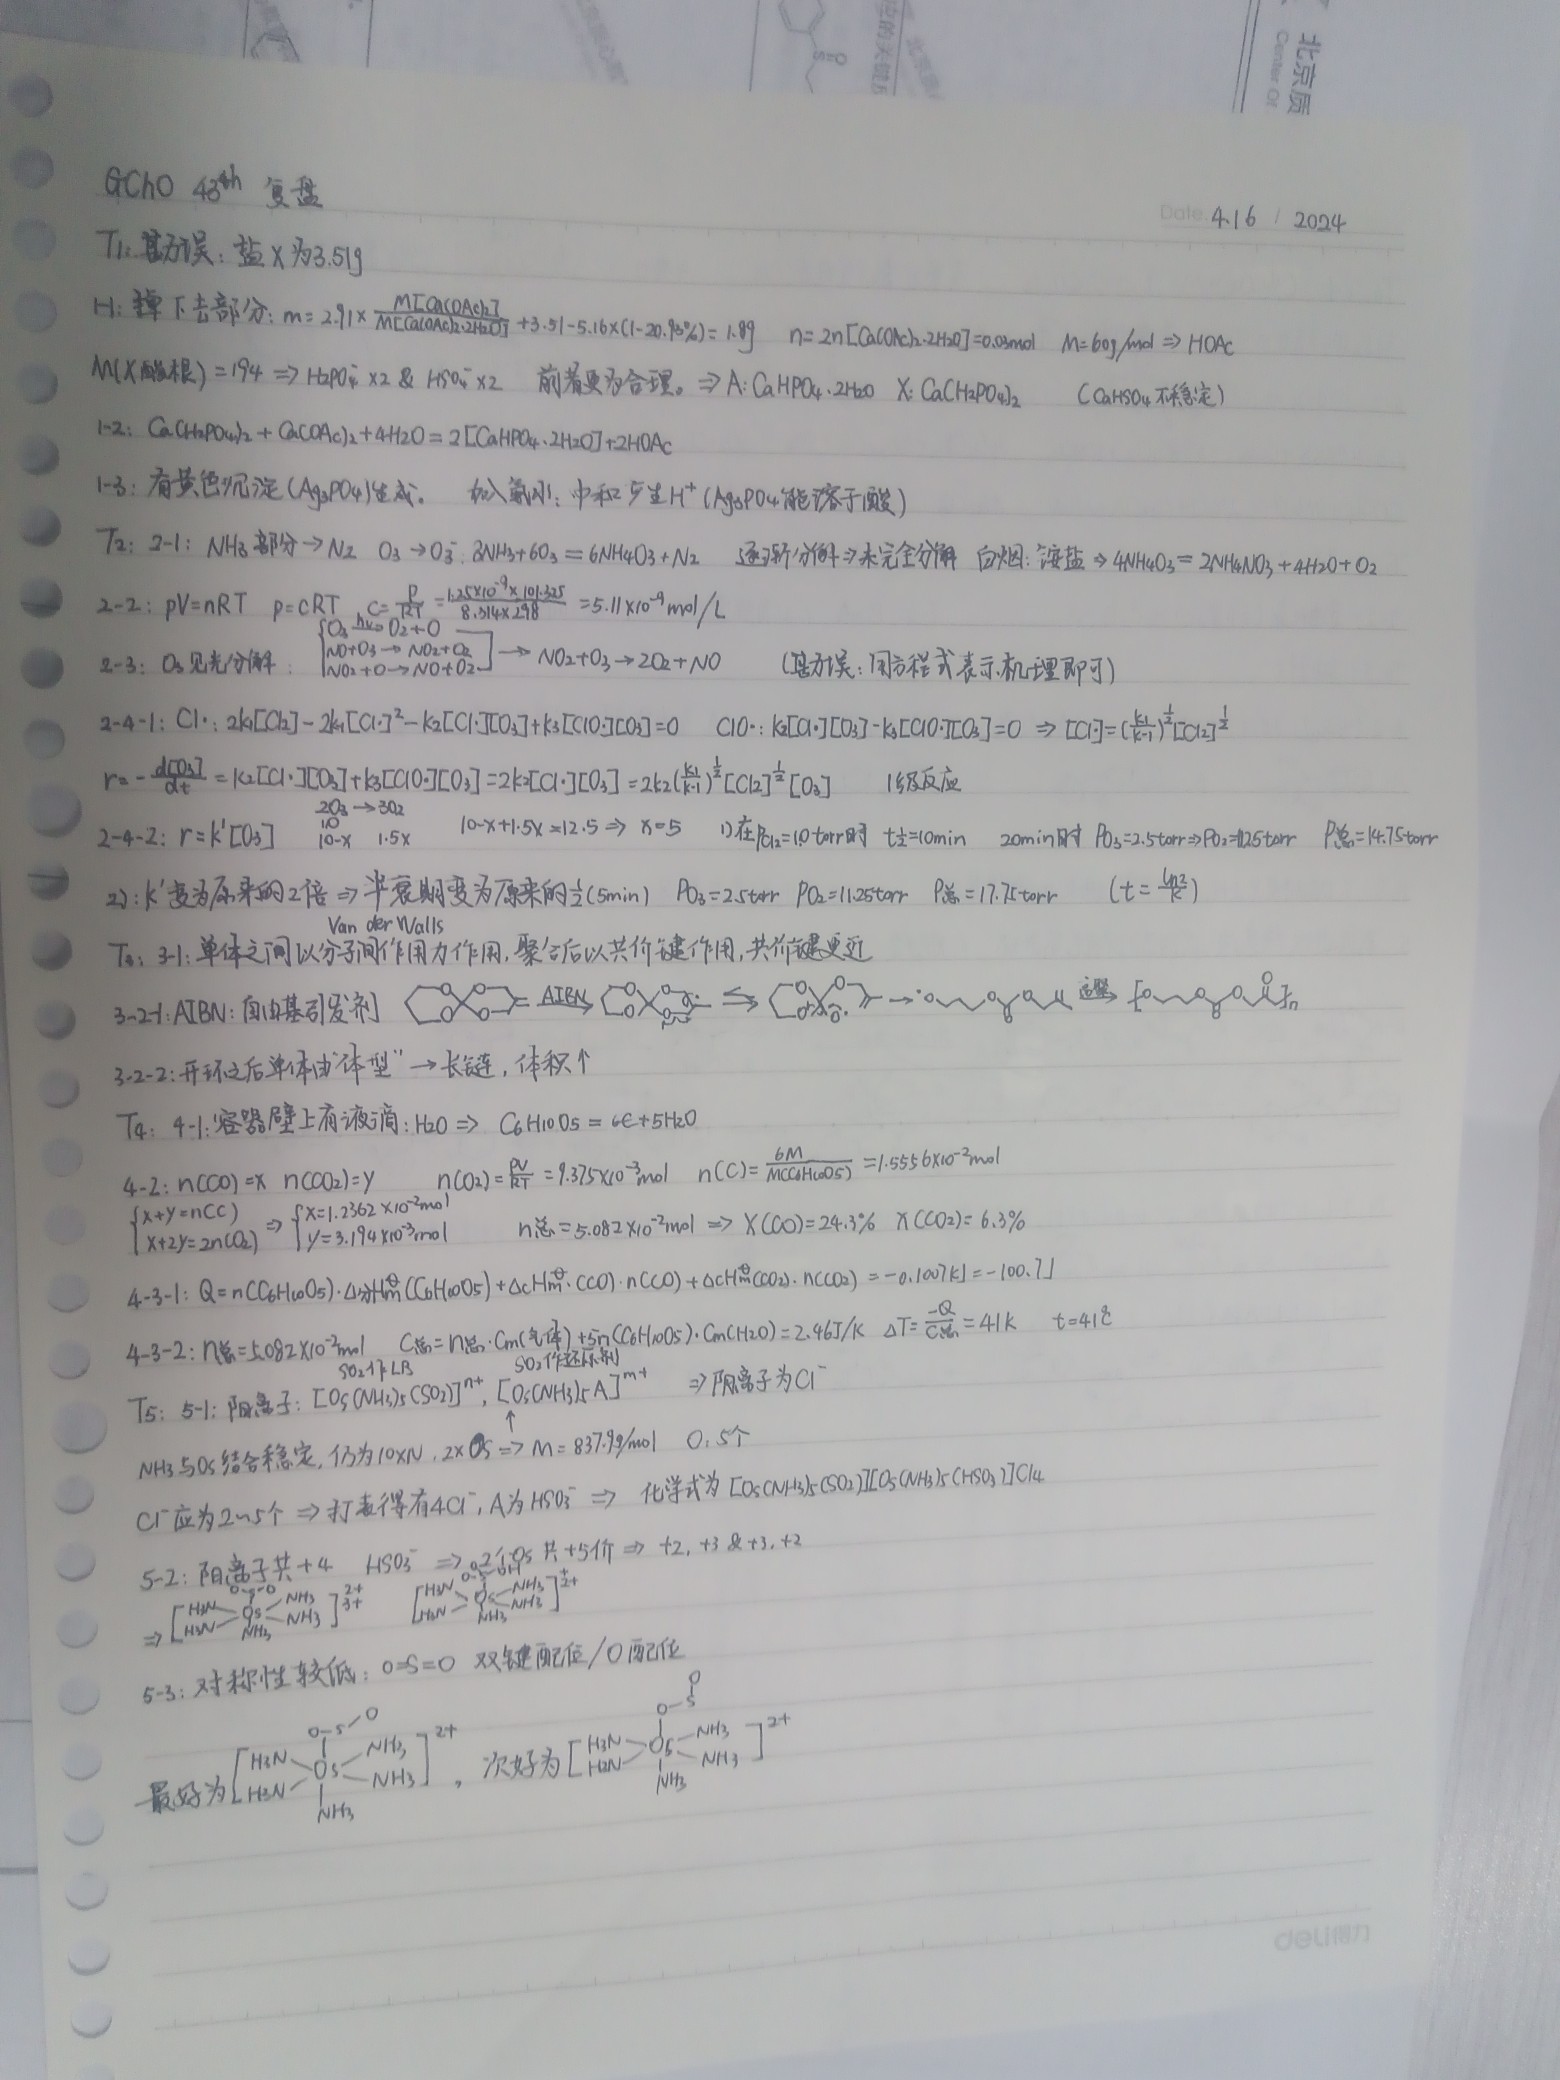 北京质
Center Of
GChO 48th 复盘
Date 4.16 / 2024
T1: 勘误: 盐X为3.51g
1-1: 掉下去部分: m=2.91×M[Ca(OAc)2]/M[Ca(OAc)2·2H2O]+3.51-5.16×(1-20.93%)=1.8g n=2n[Ca(OAc)2·2H2O]=0.03mol M=60g/mol⇒HOAc
M(X酸根)=194 ⇒H2PO4⁻×2 & HSO4⁻×2 前者更为合理。⇒A: CaHPO4·2H2O X: Ca(H2PO4)2 (CaHSO4不稳定)
1-2: Ca(H2PO4)2+Ca(OAc)2+4H2O=2[CaHPO4·2H2O]+2HOAc
1-3: 有黄色沉淀(Ag3PO4)生成。 加入氨水: 中和产生H⁺(Ag3PO4能溶于酸)
T2: 2-1: NH3部分→N2 O3→O3⁻: 8NH3+6O3=6NH4O3+N2 逐渐分解⇒未完全分解 白烟: 铵盐⇒4NH4O3=2NH4NO3+4H2O+O2
2-2: pV=nRT p=cRT c=p/RT=1.25×10⁻⁹×101.325/8.314×298=5.11×10⁻⁹mol/L
2-3: O3见光分解: {O3 hν→ O2+O
NO+O3→NO2+O2
NO2+O→NO+O2 ]→NO2+O3→2O2+NO (勘误: 用方程式表示机理即可)
2-4-1: Cl·: 2k1[Cl2]-2k-1[Cl·]²-k2[Cl·][O3]+k3[ClO·][O3]=0 ClO·: k2[Cl·][O3]-k3[ClO·][O3]=0 ⇒[Cl·]=(k1/k-1)^½[Cl2]^½
r=-d[O3]/dt=k2[Cl·][O3]+k3[ClO·][O3]=2k2[Cl·][O3]=2k2(k1/k-1)^½[Cl2]^½[O3] 1级反应
2O3→3O2
10
2-4-2: r=k'[O3] 10-x 1.5x 10-x+1.5x=12.5⇒x=5 1)在pCl2=1.0torr时 t½=10min 20min时 PO3=2.5torr⇒PO2=11.25torr P总=14.75torr
2): k'变为原来的2倍⇒半衰期变为原来的½(5min) PO3=2.5torr PO2=11.25torr P总=17.75torr (t=ln2/k)
Van der Walls
T3: 3-1: 单体之间以分子间作用力作用, 聚合后以共价键作用, 共价键更近
3-2-1: AIBN: 自由基引发剂 AIBN
3-2-2: 开环之后单体由"体型"→长链, 体积↑
T4: 4-1: 容器壁上有液滴: H2O⇒ C6H10O5=6C+5H2O
4-2: n(CO)=x n(CO2)=y n(O2)=pV/RT=9.375×10⁻³mol n(C)=6M/M(C6H10O5)=1.5556×10⁻²mol
{x+y=n(C)
x+2y=2n(O2) ⇒ {x=1.2362×10⁻²mol
y=3.194×10⁻³mol n总=5.082×10⁻²mol⇒X(CO)=24.3% X(CO2)=6.3%
4-3-1: Q=n(C6H10O5)·Δ分Hm^θ(C6H10O5)+ΔcHm^θ·(CO)·n(CO)+ΔcHm^θ(CO2)·n(CO2)=-0.1007kJ=-100.7J
4-3-2: n总=5.082×10⁻²mol C总=n总·Cm(气体)+5n(C6H10O5)·Cm(H2O)=2.46J/K ΔT=-Q/C总=41K t=41℃
SO2作LB SO2作还原剂
T5: 5-1: 阳离子: [Os(NH3)5(SO2)]ⁿ⁺, [Os(NH3)5A]ᵐ⁺ ⇒阴离子为Cl⁻
NH3与Os结合稳定, 仍为10×N, 2×Os⇒M=837.9g/mol O: 5个
Cl⁻应为2~5个⇒打表得有4Cl⁻, A为HSO3⁻⇒ 化学式为[Os(NH3)5(SO2)][Os(NH3)5(HSO3)]Cl4
5-2: 阳离子共+4 HSO3⁻⇒2个Os共+5价⇒+2, +3&+3, +2
5-3: 对称性较低: O=S=O 双键配位/O配位
最好为 , 次好为
deli得力